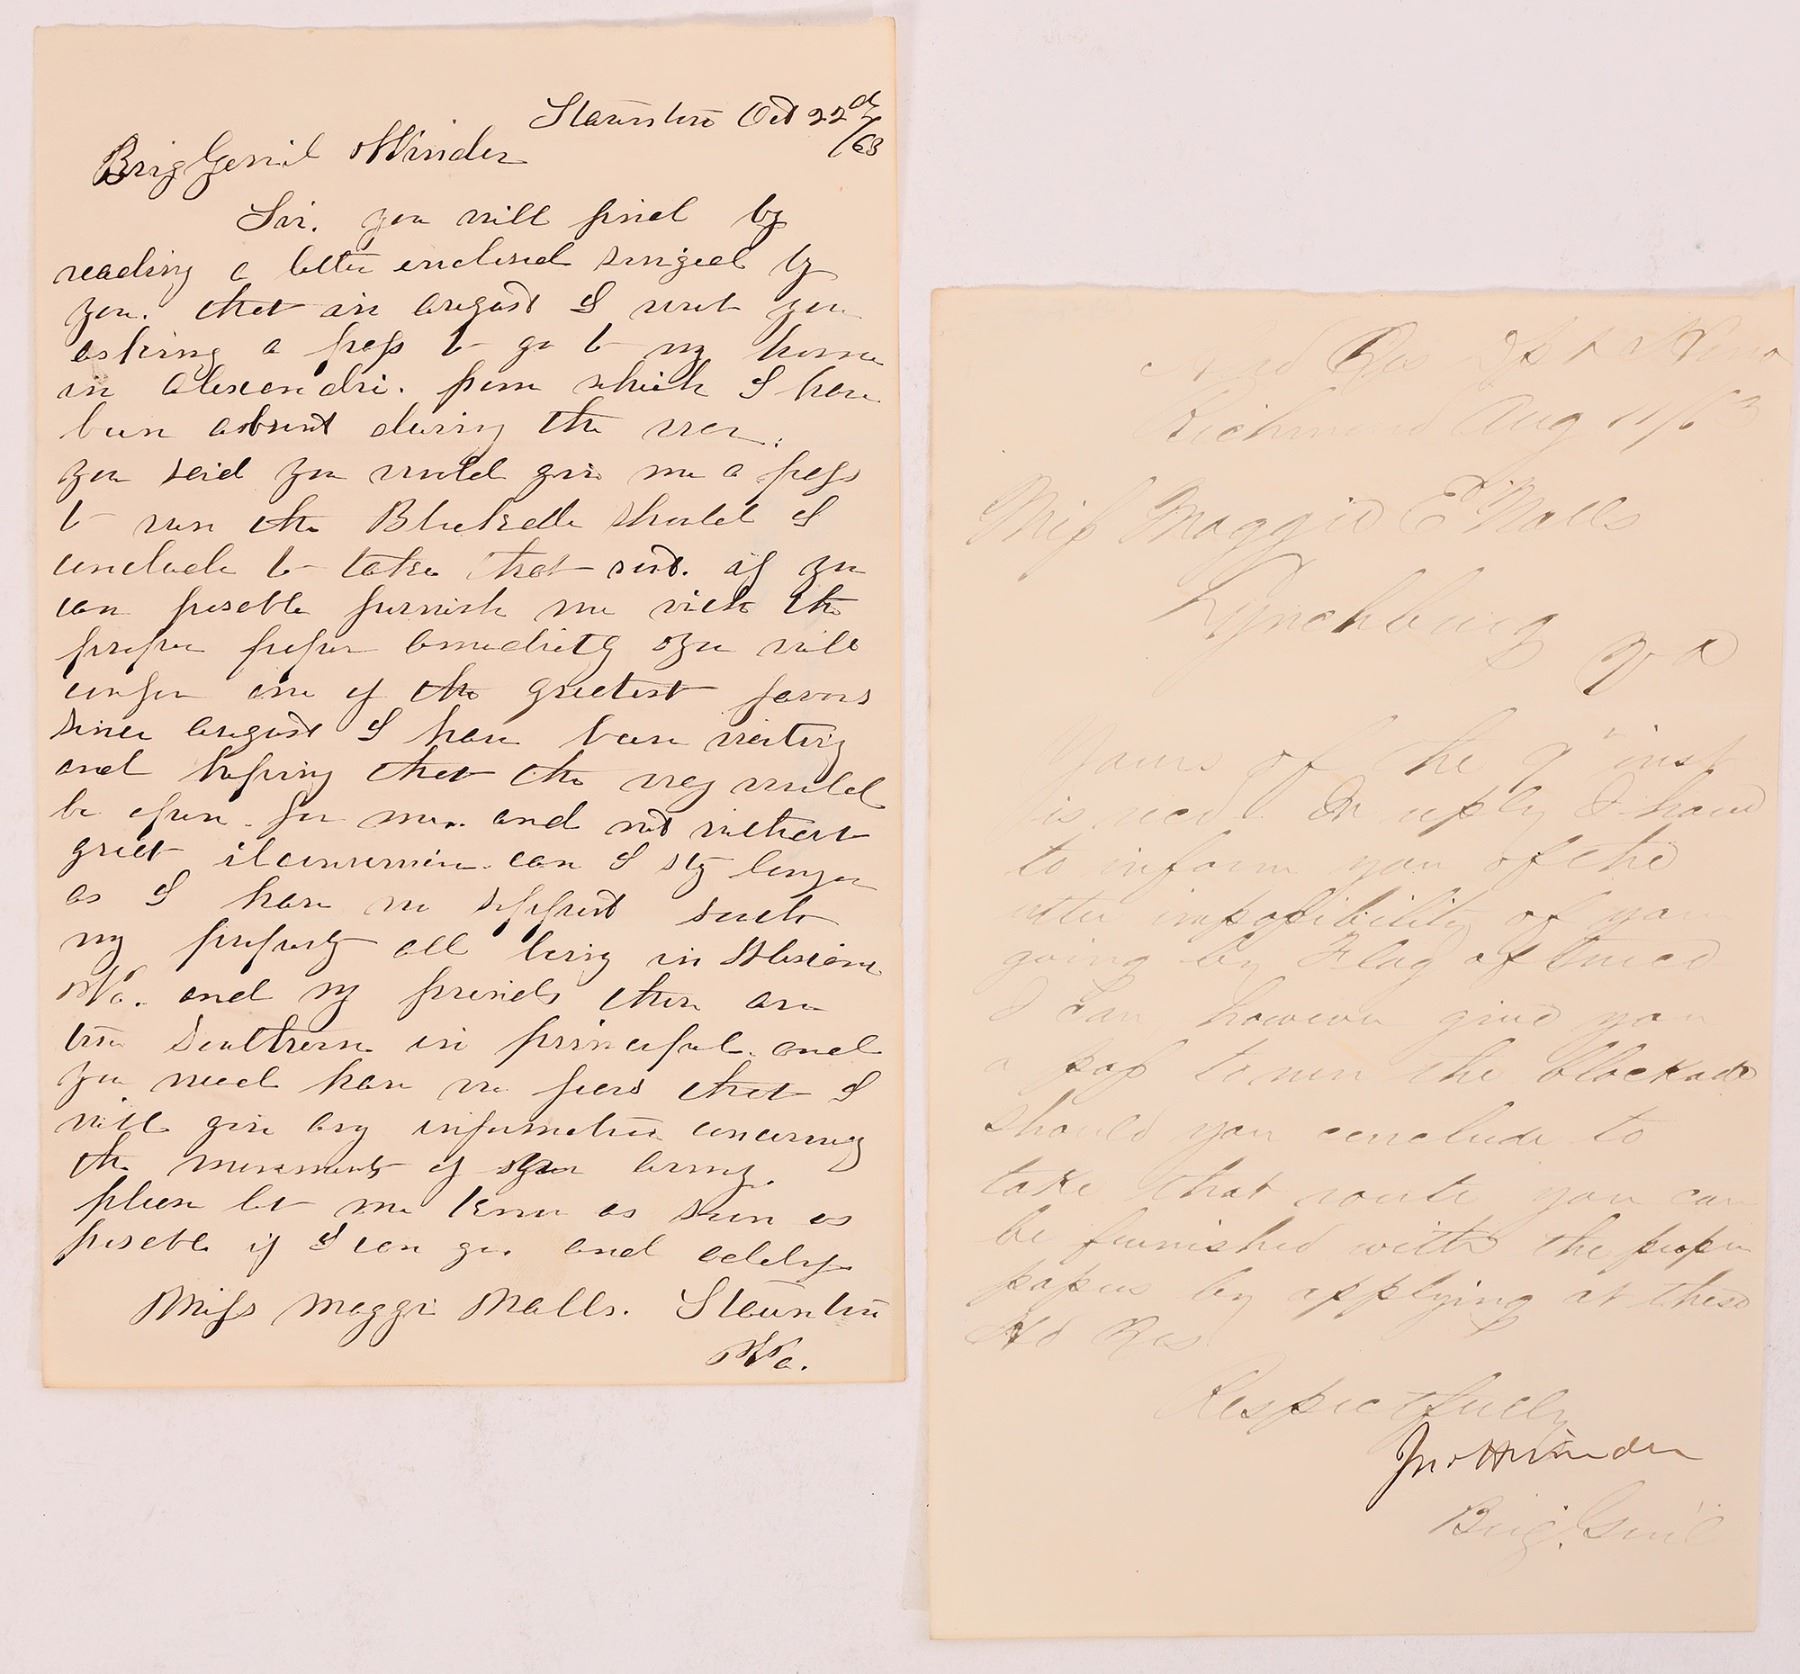 Staunton Oct 22d
/63
Brig Genril Winder
Sir. you will find by
reading a letter enclosed singed by
you. that in august I writ you
asking a pass to go to my home
in Alexandri. from which I have
been absent during the war.
you said you would give me a pass
to run the Blockade should I
conclude to take that rout. if you
can possble furnish me with the
proper papers you will
confer one of the greatest favors
since august I have been waiting
and hoping that the way would
be open for me. and not without
great can I sty longer
as I have no support South
my property all being in Alexan
Va. and my friends there are
true Southern in princepal. and
you need have no fears that I
will give any information concerning
the movements of your army.
please let me know as soon as
posable if I can go. and oblidge
Miss Maggie Nalls. Staunton
Va.
Hd Qrs
Richmond Aug 11/63
Miss Maggie E Nalls
Lynchburg
Va
Yours of the 9" inst
is recd. In reply I have
to inform you of the
utter impossibility of you
going by Flag of truce
I can however give you
a pass to run the blockade
should you conclude to
take that route you can
be furnished with the proper
papers by applying at these
Hd Qrs
Respectfully
Jno H Winder
Brig. Gen'l